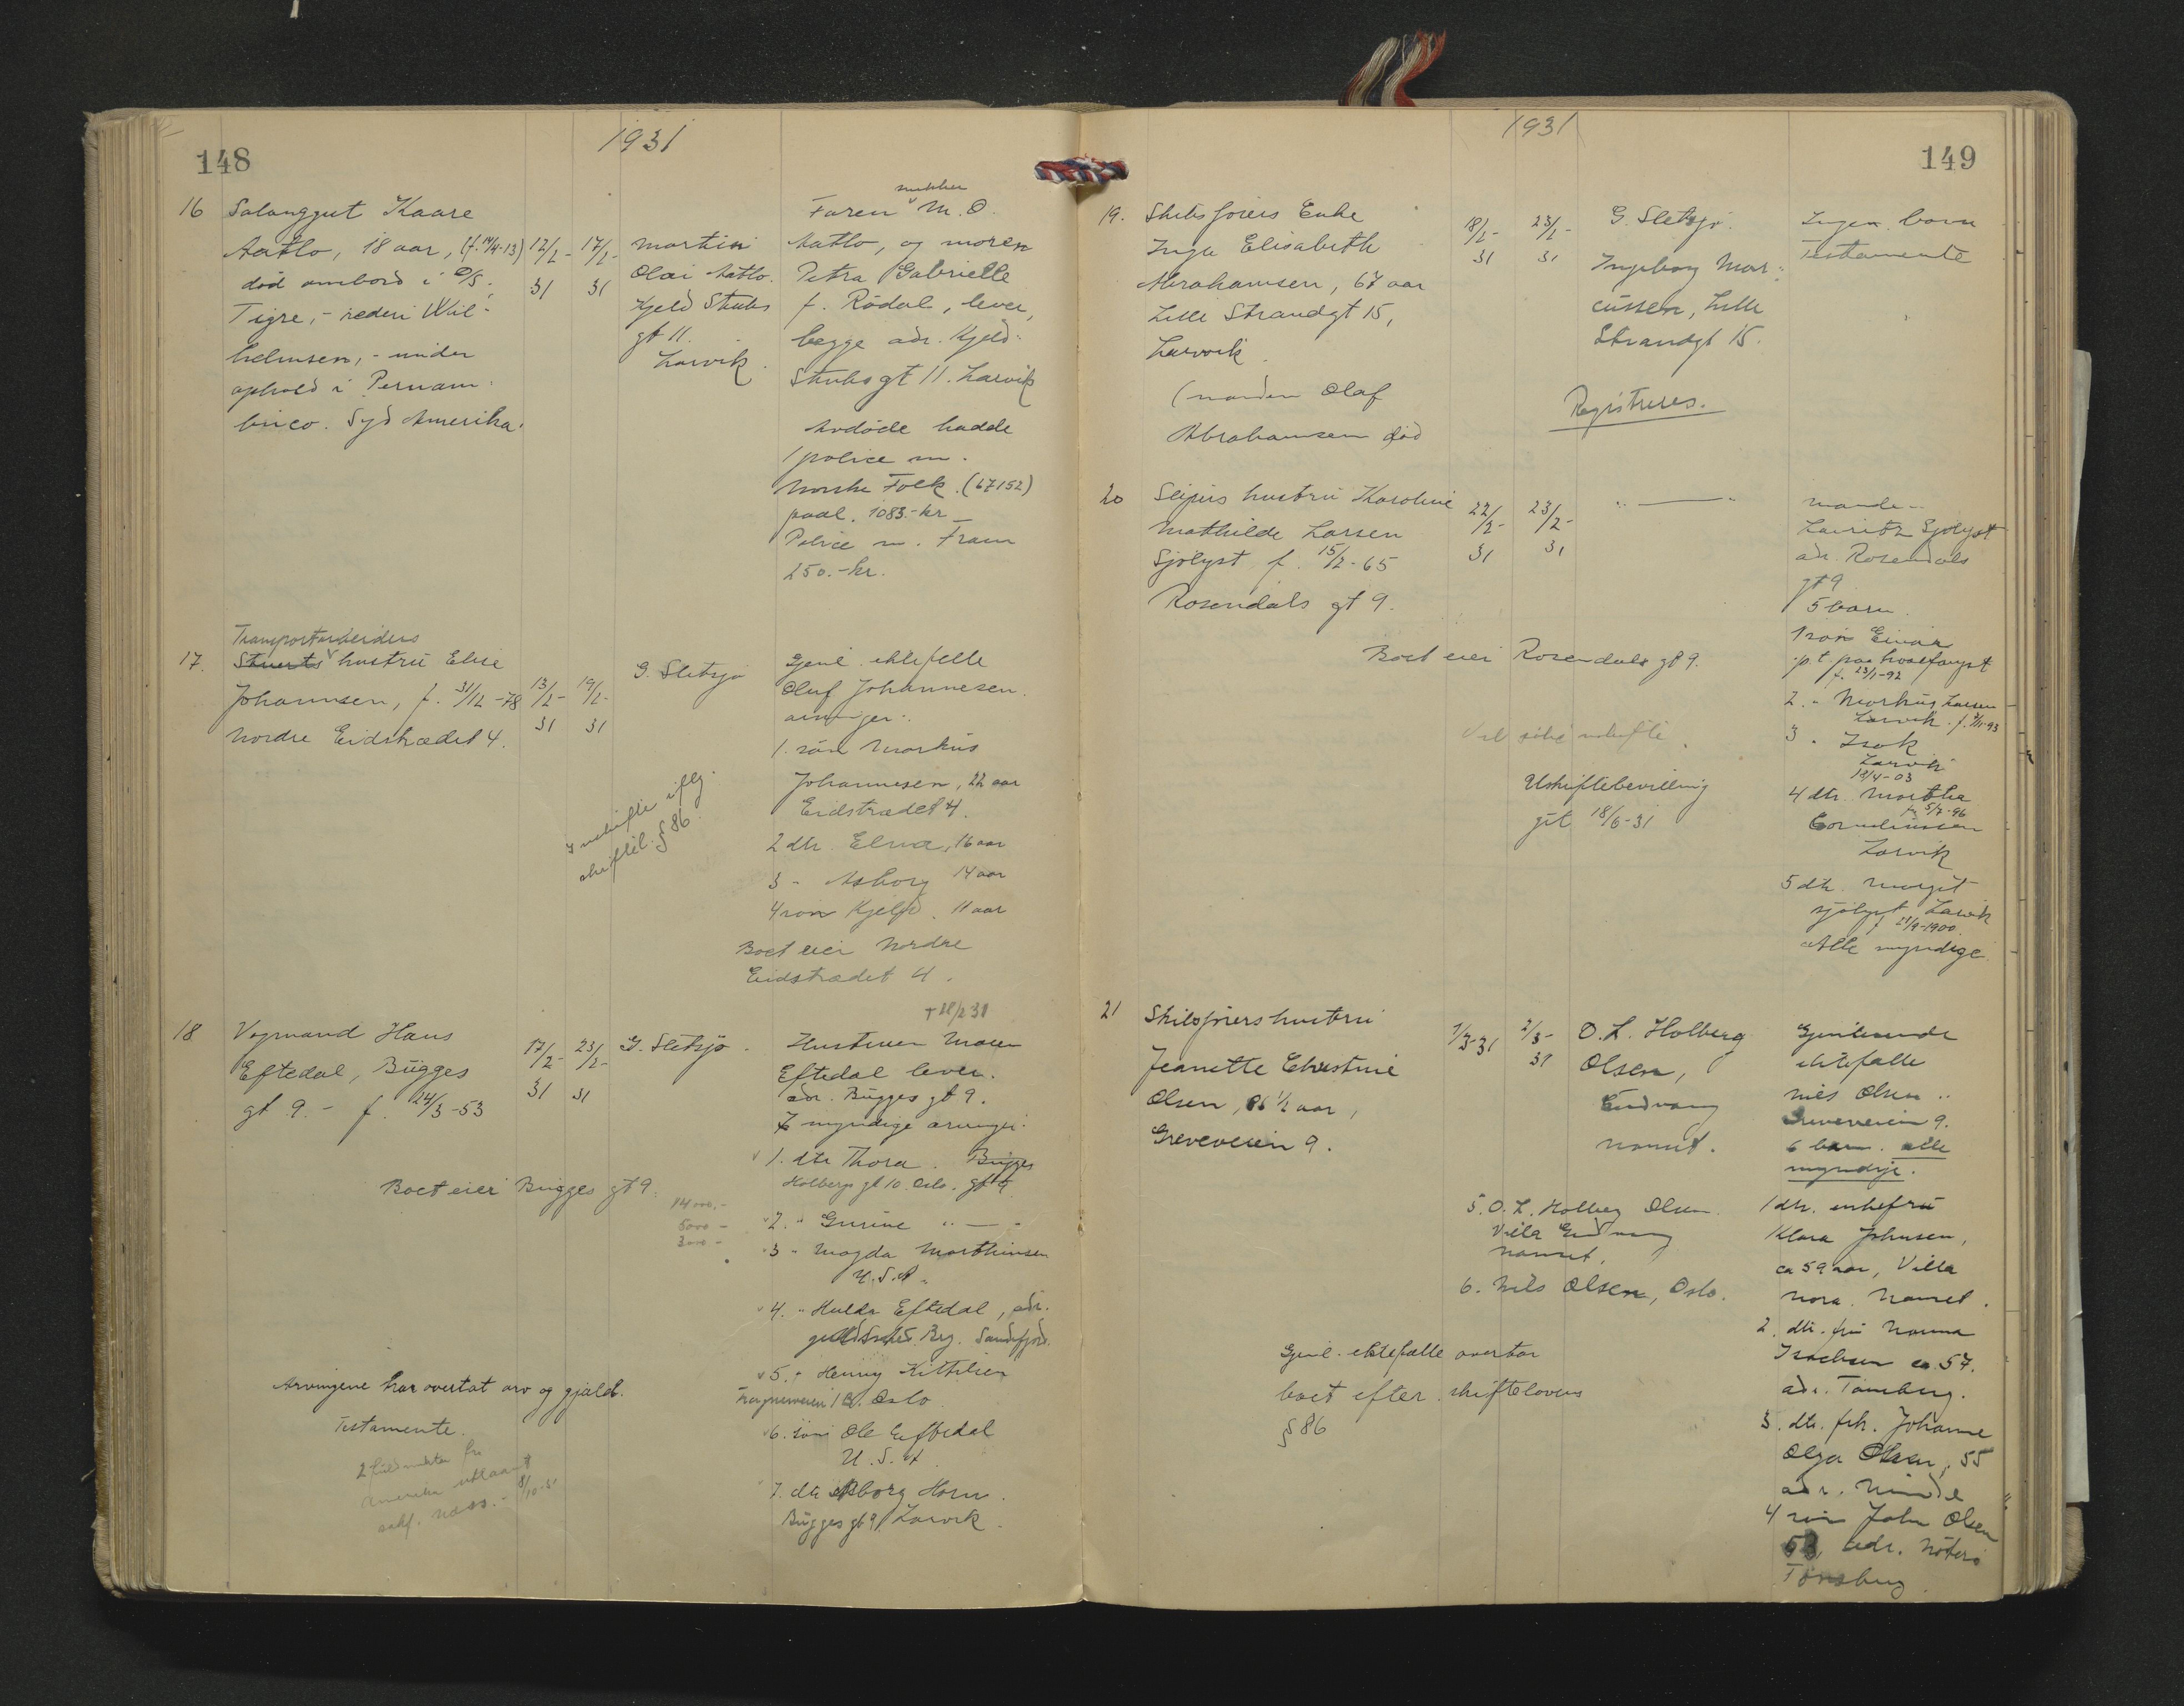 148
1931
16 Salonggut Kaare
Aatlo, 18 aar, (f. 14/4-13)
død ombord i D/S.
Tigre, - rederi Wil-
helmsen, - under
ophold i Pernam-
buco. Syd Amerika.
12/2-31
17/2-31
Martin
Olai Aatlo.
Kjeld Stubs
gt 11.
Larvik.
Faren M. O.
Aatlo, og moren
Petra Gabrielle
f. Rødal, lever,
begge adr. Kjeld
Stubsgt 11. Larvik
Avdøde hadde
1 police m.
Norske Folk. (67152)
paal. 1083.- kr
Police m. Fram
250.- kr.
Transportarbeiders
17. Stuerts hustru Elise
Johannsen, f. 31/12-78
Nordre Eidstrædet 4.
13/2-31
19/2-31
G. Sletsjø
Gjenl. ektefelle
Oluf Johannesen.
arvinger:
1. søn Markus
Johannesen, 22 aar
Eidstrædet 4.
2 dtr. Elna, 16 aar
3 - Asborg 14 aar
4 søn Kjeld. 11 aar
Boet eier Nordre
Eidstrædet 4.
I uskifte iflg.
skiftel. § 86
18 Vognmand Hans
Eftedal, Bugges
gt 9. - f. 24/3-53
17/2-31
23/2-31
G. Sletsjø
+ 28/2 31
Hustruen Maren
Eftedal lever.
adr. Bugges gt 9.
7 myndige arvinger:
1. dtr Thora. Bugges
Holbergs gt 10. Oslo. gt 9
2. " Gurine " — "
3 " Magda Marthinsen
U.S.A.
4. " Hulda Eftedal, adr.
Sandefjord.
5. " Henny Kittilsen
Oslo
6. søn Ole Eftedal
U.S.A.
7. dtr Asborg Horn.
Bugges gt 9, Larvik.
Boet eier Bugges gt 9.
14000.-
5000 -
3000 -
Arvingene har overtat arv og gjæld.
Testamente.
2 fra
Amerika utlaant
8/10-31
149
1931
19. Skibsførers Enke
Inga Elisabeth
Abrahamsen, 67 aar
Lille Strandgt 15,
Larvik.
(manden Olaf
Abrahamsen død
18/2-31
23/2-31
G. Sletsjø.
Ingeborg Mar-
cussen, Lille
Strandgt 15.
Ingen barn
Testamente
Registreres.
20 Slipers hustru Karoline
Mathilde Larsen
Sjølyst f. 15/2-65
Rosendals gt 9.
22/2-31
23/2-31
" — "
mande
Lauritz Sjølyst
adr. Rosendals
gt 9
5 barn.
1 søn Einar
p.t. paa hvalfangst
f. 23/1-92
2. " Markus Larsen
Larvik.
3 " Isak
Larvik
18/4-03
4 dtr. Martha
f. 5/7-96
Corneliussen
Larvik
5 dtr. Margit
Sjølyst Larvik
f 21/9-1900.
Alle myndige.
Boet eier Rosendals gt 9.
Vil sitte i uskifte.
Uskiftebevilling
git 18/6-31
21 Skibsførers hustru
Jeanette Christine
Olsen, 86 1/2 aar,
Greveveien 9.
1/3-31
2/3-31
O. L. Holberg
Olsen,
Endvang
Nanset.
Gjenlevende
ektefælle
Nils Olsen
Greveveien 9.
6 barn. alle
myndige.
1 dtr. enkefru
Klara Johnsen,
ca 59 aar, Villa
Nora. Nanset.
2. dtr. fru Nanna
Isachsen ca. 57.
adr. Tønsberg.
3. dtr. frk. Johanne
Olga Olsen, 55
adr. Minde
4 søn John Olsen
53 adr. Nøterø
Tønsberg.
5. O. L. Holberg Olsen.
Villa Endvang
Nanset,
6. Nils Olsen, Oslo.
Gjenl. ektefælle overtar
boet efter skiftelovens
§ 86